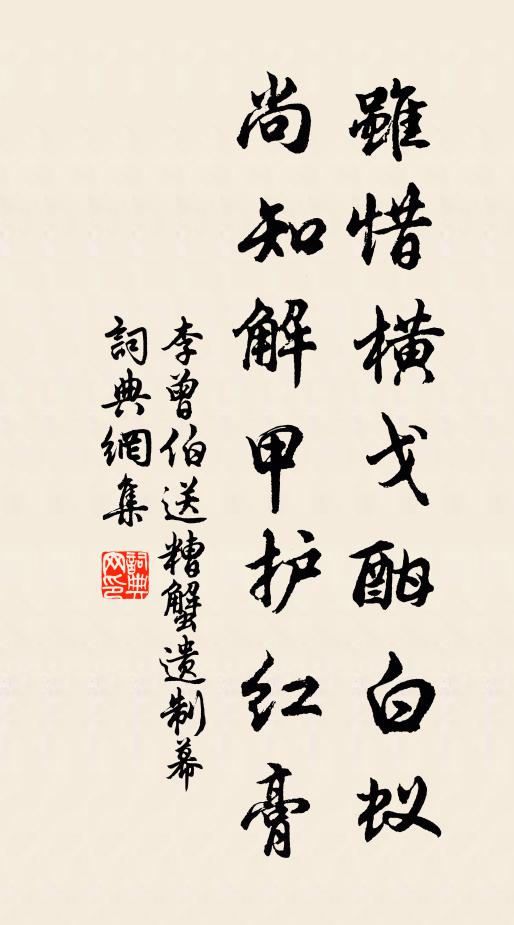 雖惜橫戈酣白蚁
尚知解甲护红膏
李曾伯送糟蟹遗制幕
詞典網集
詞典网印